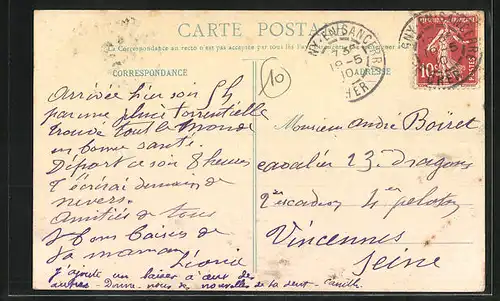 CARTE POSTALE
La Correspondance au recto n'est pas acceptée par tous les Pays
CORRESPONDANCE
ADRESSE
NY-EN-SANCERRE
75
18-5
10
CHER
10
10
Arrivée hier soir 5h
par une pluie torrentielle
trouvé tout le monde
en bonne santé.
Départ ce soir 8 heures
T'écrirai demain de
nevers.
Amitiés de tous
& bons baisers de
ta maman
Léonie
J'ajoute un baiser à ceux des
autres - Donne-nous des nouvelles de ta dent - Camille
Monsieur andré Boiret
cavalier 23. dragons
2e escadron 4e peloton
Vincennes
Seine